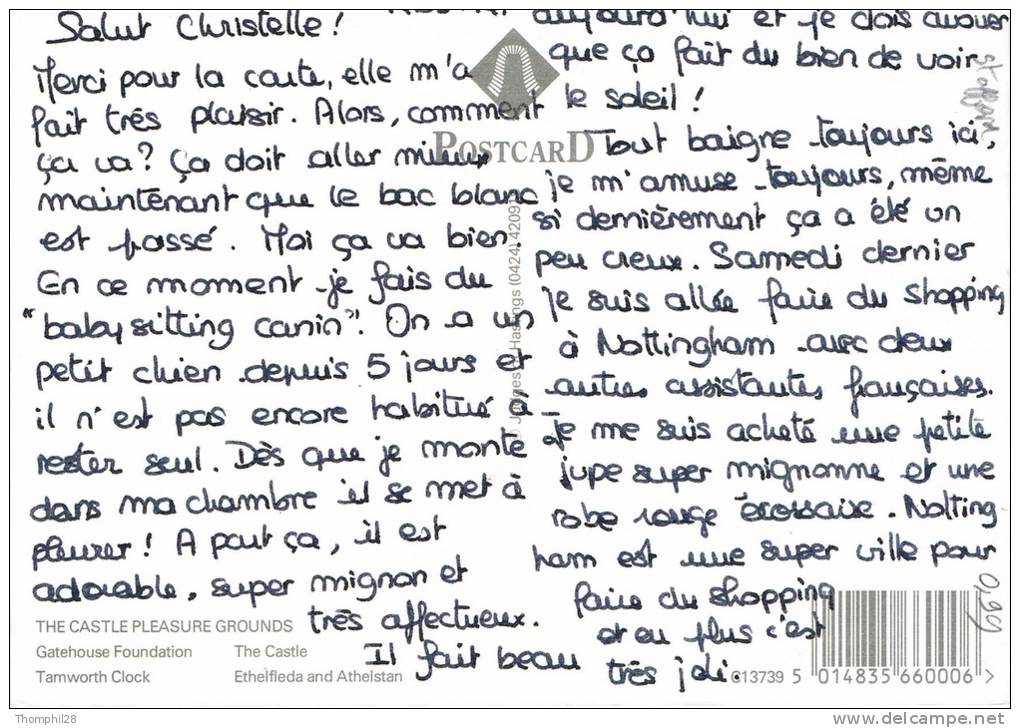 Salut Christelle !
Merci pour la carte, elle m'a
fait très plaisir. Alors, comment
ça va ? Ça doit aller mieux
maintenant que le bac blanc
est passé. Moi ça va bien.
En ce moment je fais du
"baby sitting canin"! On a un
petit chien depuis 5 jours et
il n'est pas encore habitué à
rester seul. Dès que je monte
dans ma chambre il se met à
pleurer ! A part ça, il est
adorable, super mignon et
très affectueux.
Il fait beau
aujourd'hui et je dois avouer
que ça fait du bien de voir
le soleil !
Tout baigne toujours ici,
je m'amuse toujours, même
si dernièrement ça a été un
peu creux. Samedi dernier
je suis allée faire du shopping
à Nottingham avec deux
autres assistantes françaises.
Je me suis acheté une petite
jupe super mignonne et une
robe rouge écossaise. Notting
ham est une super ville pour
faire du shopping
et en plus c'est
très joli.
POSTCARD
© Judges Hastings (0424) 42091
THE CASTLE PLEASURE GROUNDS
Gatehouse Foundation The Castle
Tamworth Clock Ethelfleda and Athelstan
C13739 5 014835 660006 >
0,99
Thomphil28
delcampe.net